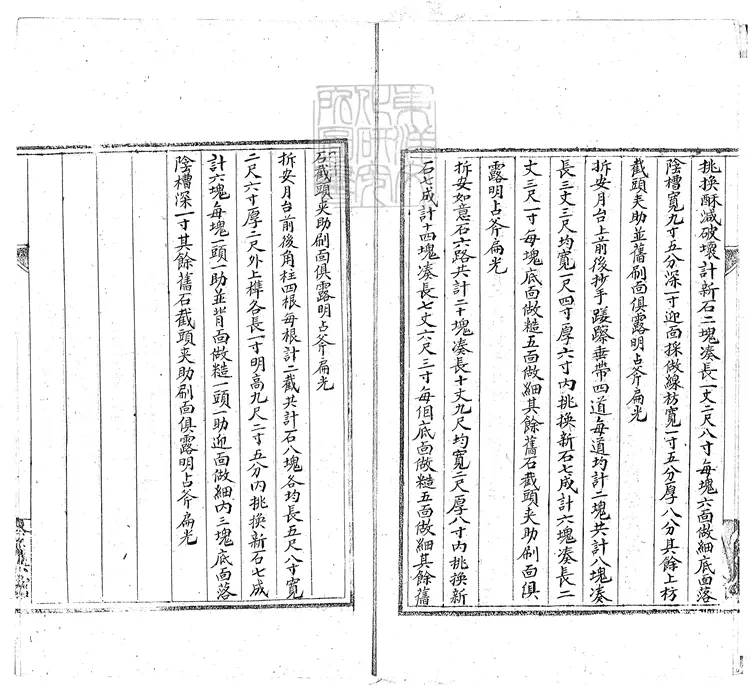 挑換酥減破壞計新石二塊湊長一丈二尺八寸每塊六面做細底面落
陰槽寬九寸五分深一寸迎面採做線枋寬一寸五分厚八分其餘上枋
截頭夾肋並舊刷面俱露明占斧扁光
拆安月台上前後抄手踏跺垂帶四道每道均計二塊共計八塊湊
長三丈三尺均寬一尺四寸厚六寸內挑換新石七成計六塊湊長二
丈三尺一寸每塊底面做糙五面做細其餘舊石截頭夾肋刷面俱
露明占斧扁光
拆安如意石六路共計二十塊湊長十丈九尺均寬二尺厚八寸內挑換新
石七成計十四塊湊長七丈六尺三寸每個底面做糙五面做細其餘舊
石截頭夾肋刷面俱露明占斧扁光
拆安月台前後角柱四根每根計二截共計石八塊各均長五尺八寸寬
二尺六寸厚二尺外上榫各長一寸明高九尺二寸五分內挑換新石七成
計六塊每塊一頭一肋並背面做糙一頭一肋迎面做細內三塊底面落
陰槽深一寸其餘舊石截頭夾肋刷面俱露明占斧扁光